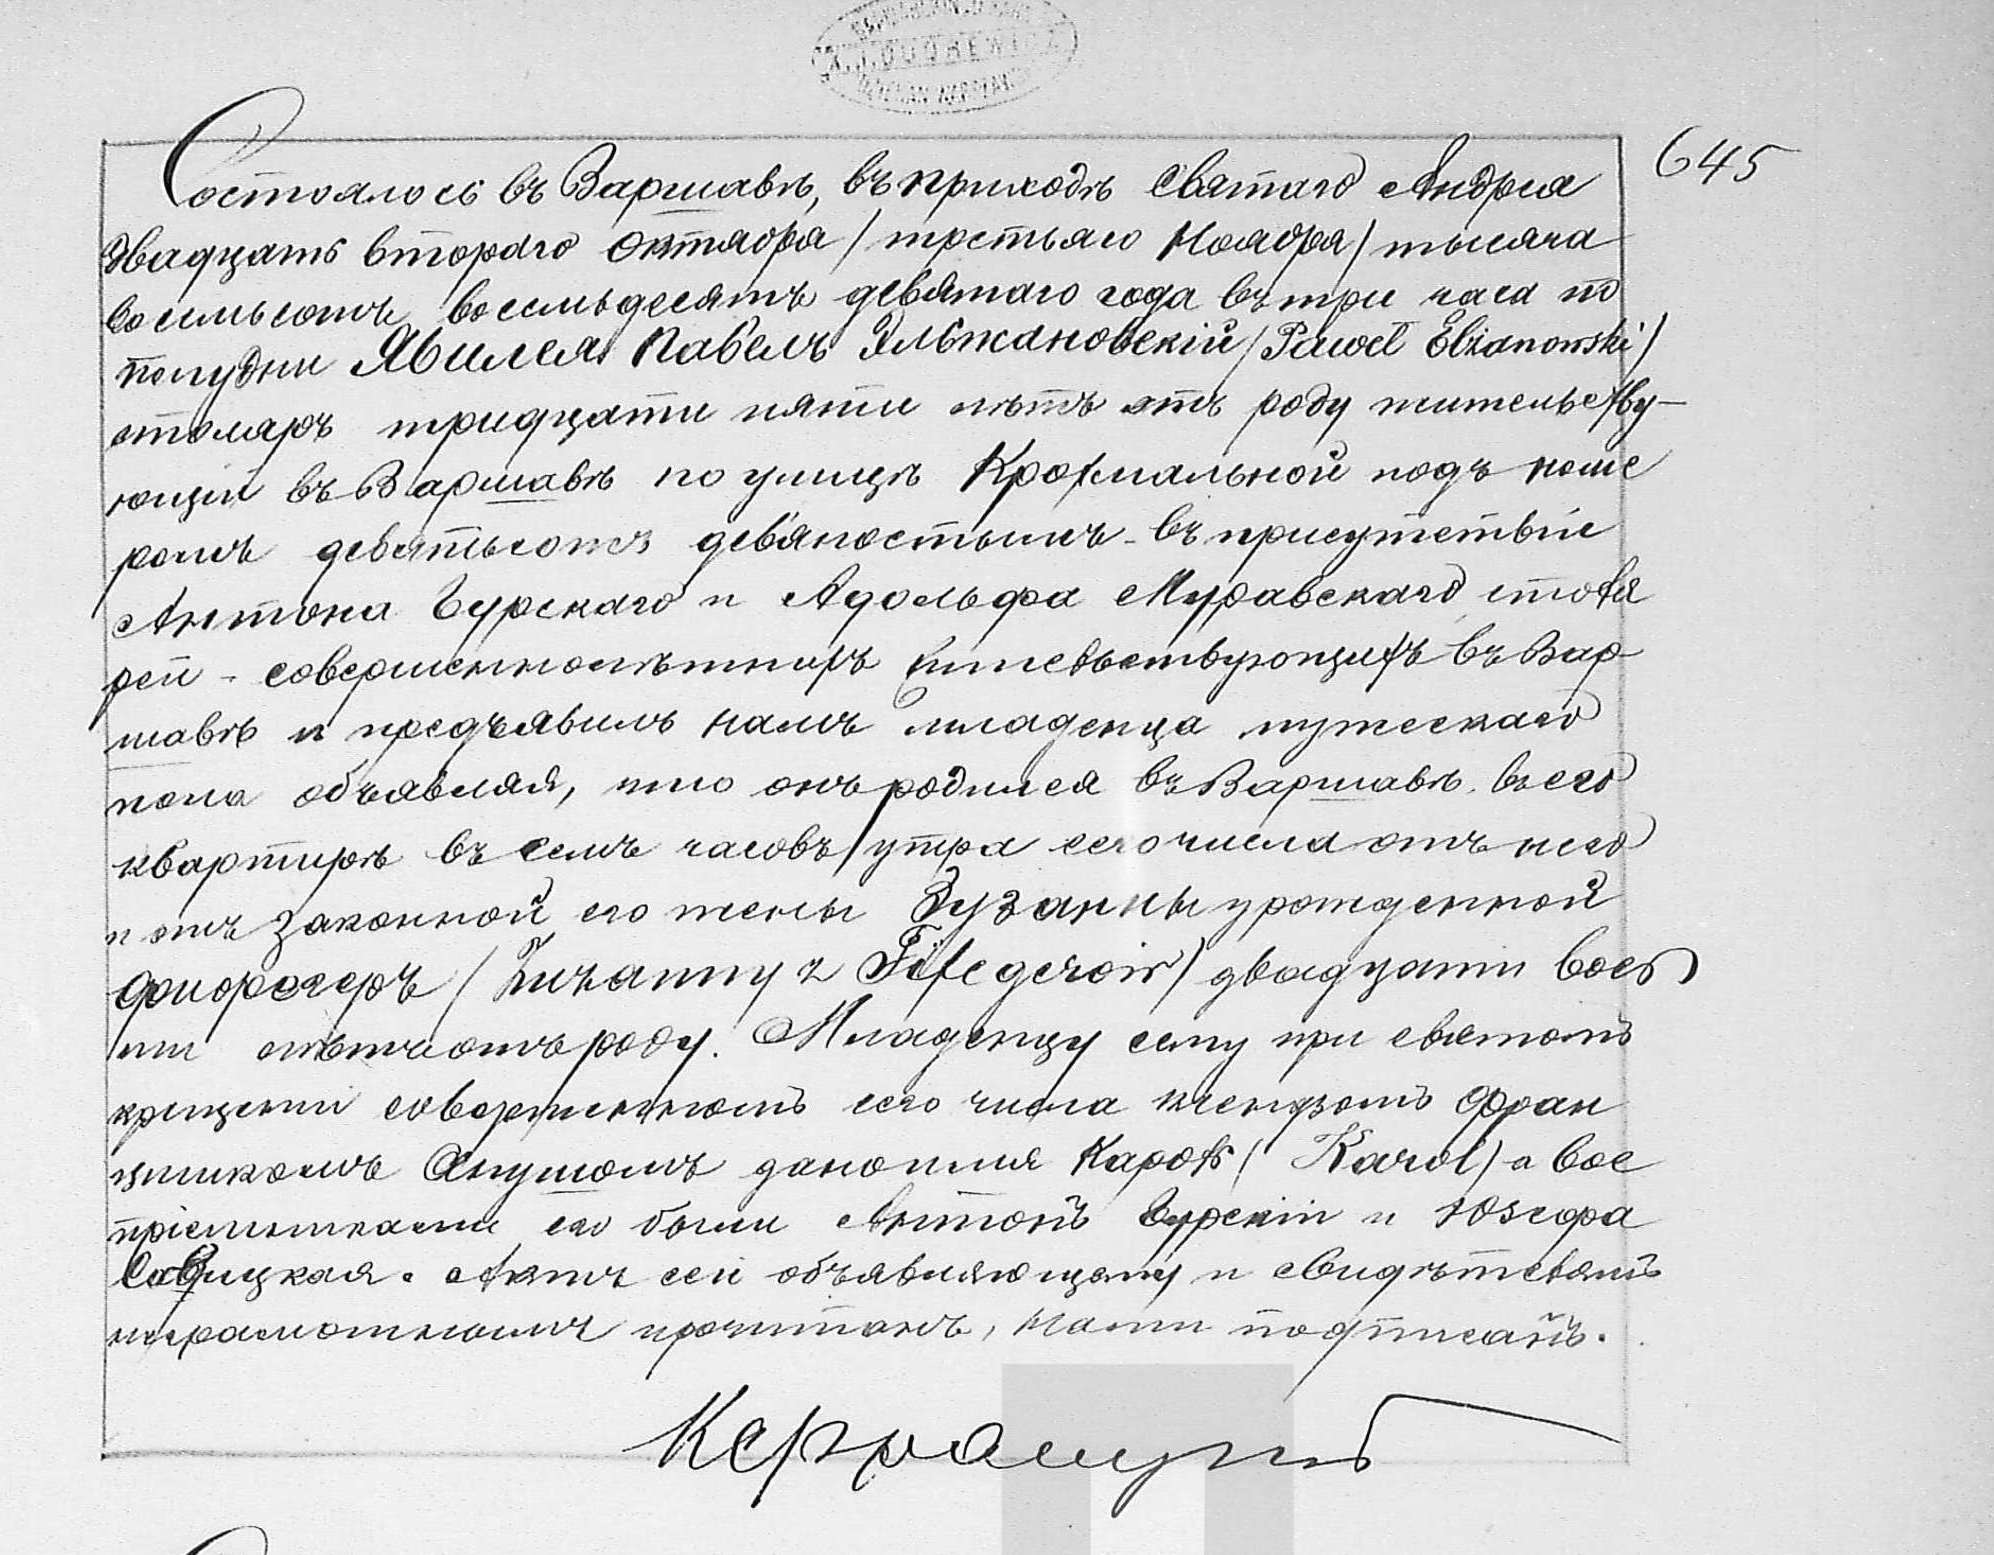 645
Состоялось въ Варшавѣ, въ приходѣ Святаго Андрея
двадцать втораго Октября / третьяго Ноября / тысяча
восемьсотъ восемьдесятъ девятаго года въ три часа по
полудни Явился Павелъ Эльжановскій / Paweł Elżanowski /
столяръ тридцати пяти лѣтъ отъ роду жительству-
ющій въ Варшавѣ по улицѣ Крохмальной подъ номе
ромъ девятьсотъ девяностымъ въ присутствіи
Антона Бурскаго и Адольфа Муравскаго столя
рей - совершеннолѣтнихъ жительствующихъ въ Вар
шавѣ и предъявилъ намъ младенца мужескаго
пола объявляя, что онъ родился въ Варшавѣ въ его
квартирѣ въ семь часовъ утра сего числа отъ него
и отъ законной его жены Зузанны урожденной
/ Zuzanny z / двадцати вось
ми лѣтъ отъ роду. Младенцу сему при святомъ
крещеніи совершенномъ сего числа ксендзомъ Фран
цишкомъ Янушомъ дано имя Кароль / Karol / а вос
пріемниками его были Антонъ Бурскій и Юзефа
Савицкая. Актъ сей объявляющему и свидѣтелямъ
неграмотнымъ прочитанъ, нами подписанъ.